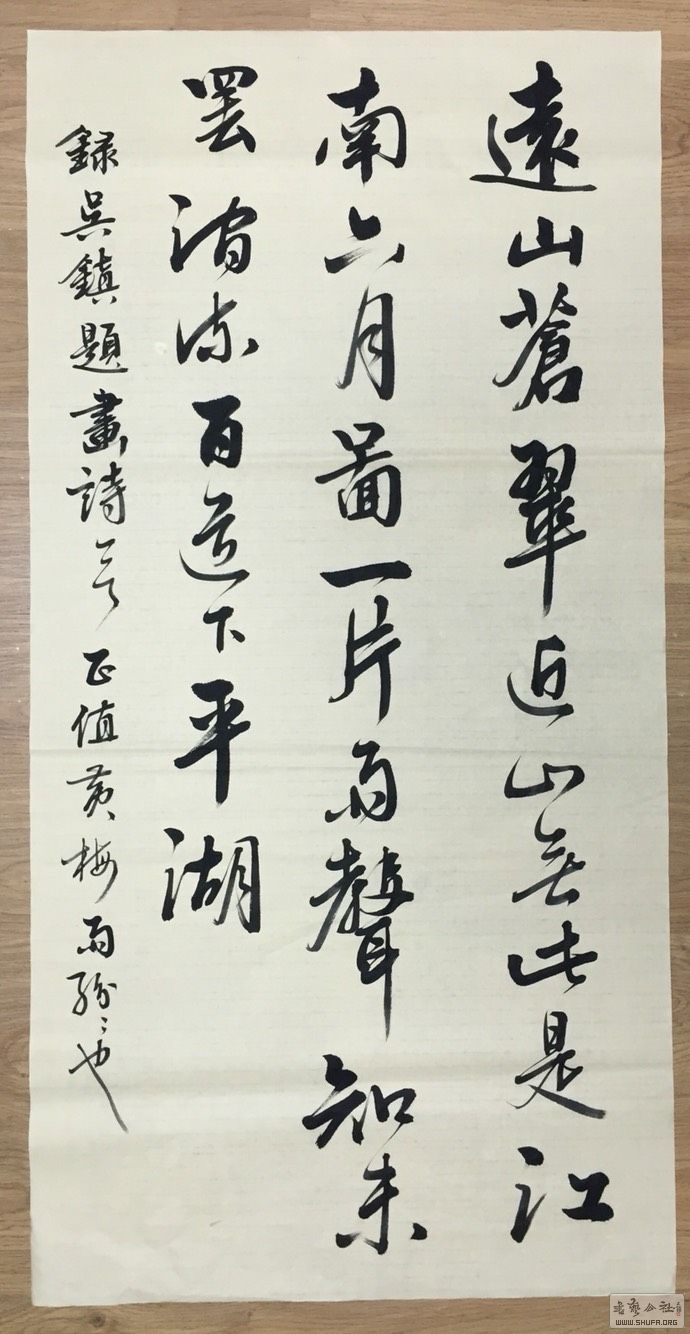 遠山蒼翠近山無此是江
南六月圖一片雨聲知未
罷涓流百道下平湖
録吳鎮題畫詩一首正值黄梅雨紛紛也
書藝公社
WWW.SHUFA.ORG